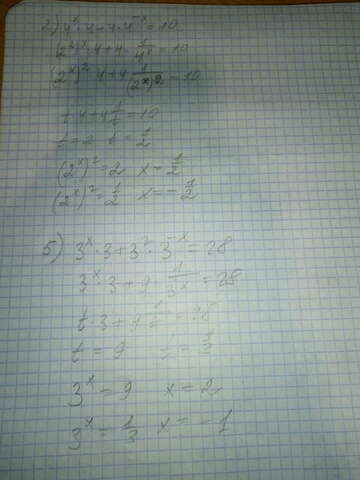 2) 4^x · 4 + 4 · 4^-x = 10
(2^2)^x · 4 + 4 · 1/4^x = 10
(2^x)^2 · 4 + 4 1/(2^x)^2 = 10
t · 4 + 4 1/t = 10
t = 2 t = 1/2
(2^x)^2 = 2 x = 1/2
(2^x)^2 = 1/2 x = - 1/2
5) 3^x · 3 + 3^2 · 3^-x = 28
3^x · 3 + 9 · 1/3^x = 28
t · 3 + 9 1/t = 28
t = 9 t = 1/3
3^x = 9 x = 2
3^x = 1/3 x = - 1